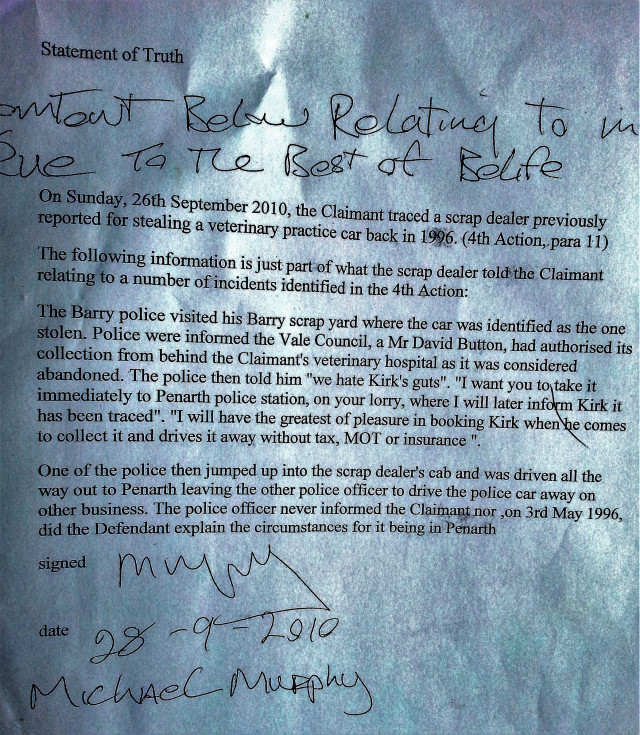 Statement of Truth
Content Below Relating to in
True To The Best of Belife
On Sunday, 26th September 2010, the Claimant traced a scrap dealer previously
reported for stealing a veterinary practice car back in 1996. (4th Action, para 11)
The following information is just part of what the scrap dealer told the Claimant
relating to a number of incidents identified in the 4th Action:
The Barry police visited his Barry scrap yard where the car was identified as the one
stolen. Police were informed the Vale Council, a Mr David Button, had authorised its
collection from behind the Claimant's veterinary hospital as it was considered
abandoned. The police then told him "we hate Kirk's guts". "I want you to take it
immediately to Penarth police station, on your lorry, where I will later inform Kirk it
has been traced". "I will have the greatest of pleasure in booking Kirk when he comes
to collect it and drives it away without tax, MOT or insurance ".
One of the police then jumped up into the scrap dealer's cab and was driven all the
way out to Penarth leaving the other police officer to drive the police car away on
other business. The police officer never informed the Claimant nor ,on 3rd May 1996,
did the Defendant explain the circumstances for it being in Penarth
signed
date 28-9-2010
Michael Murphy